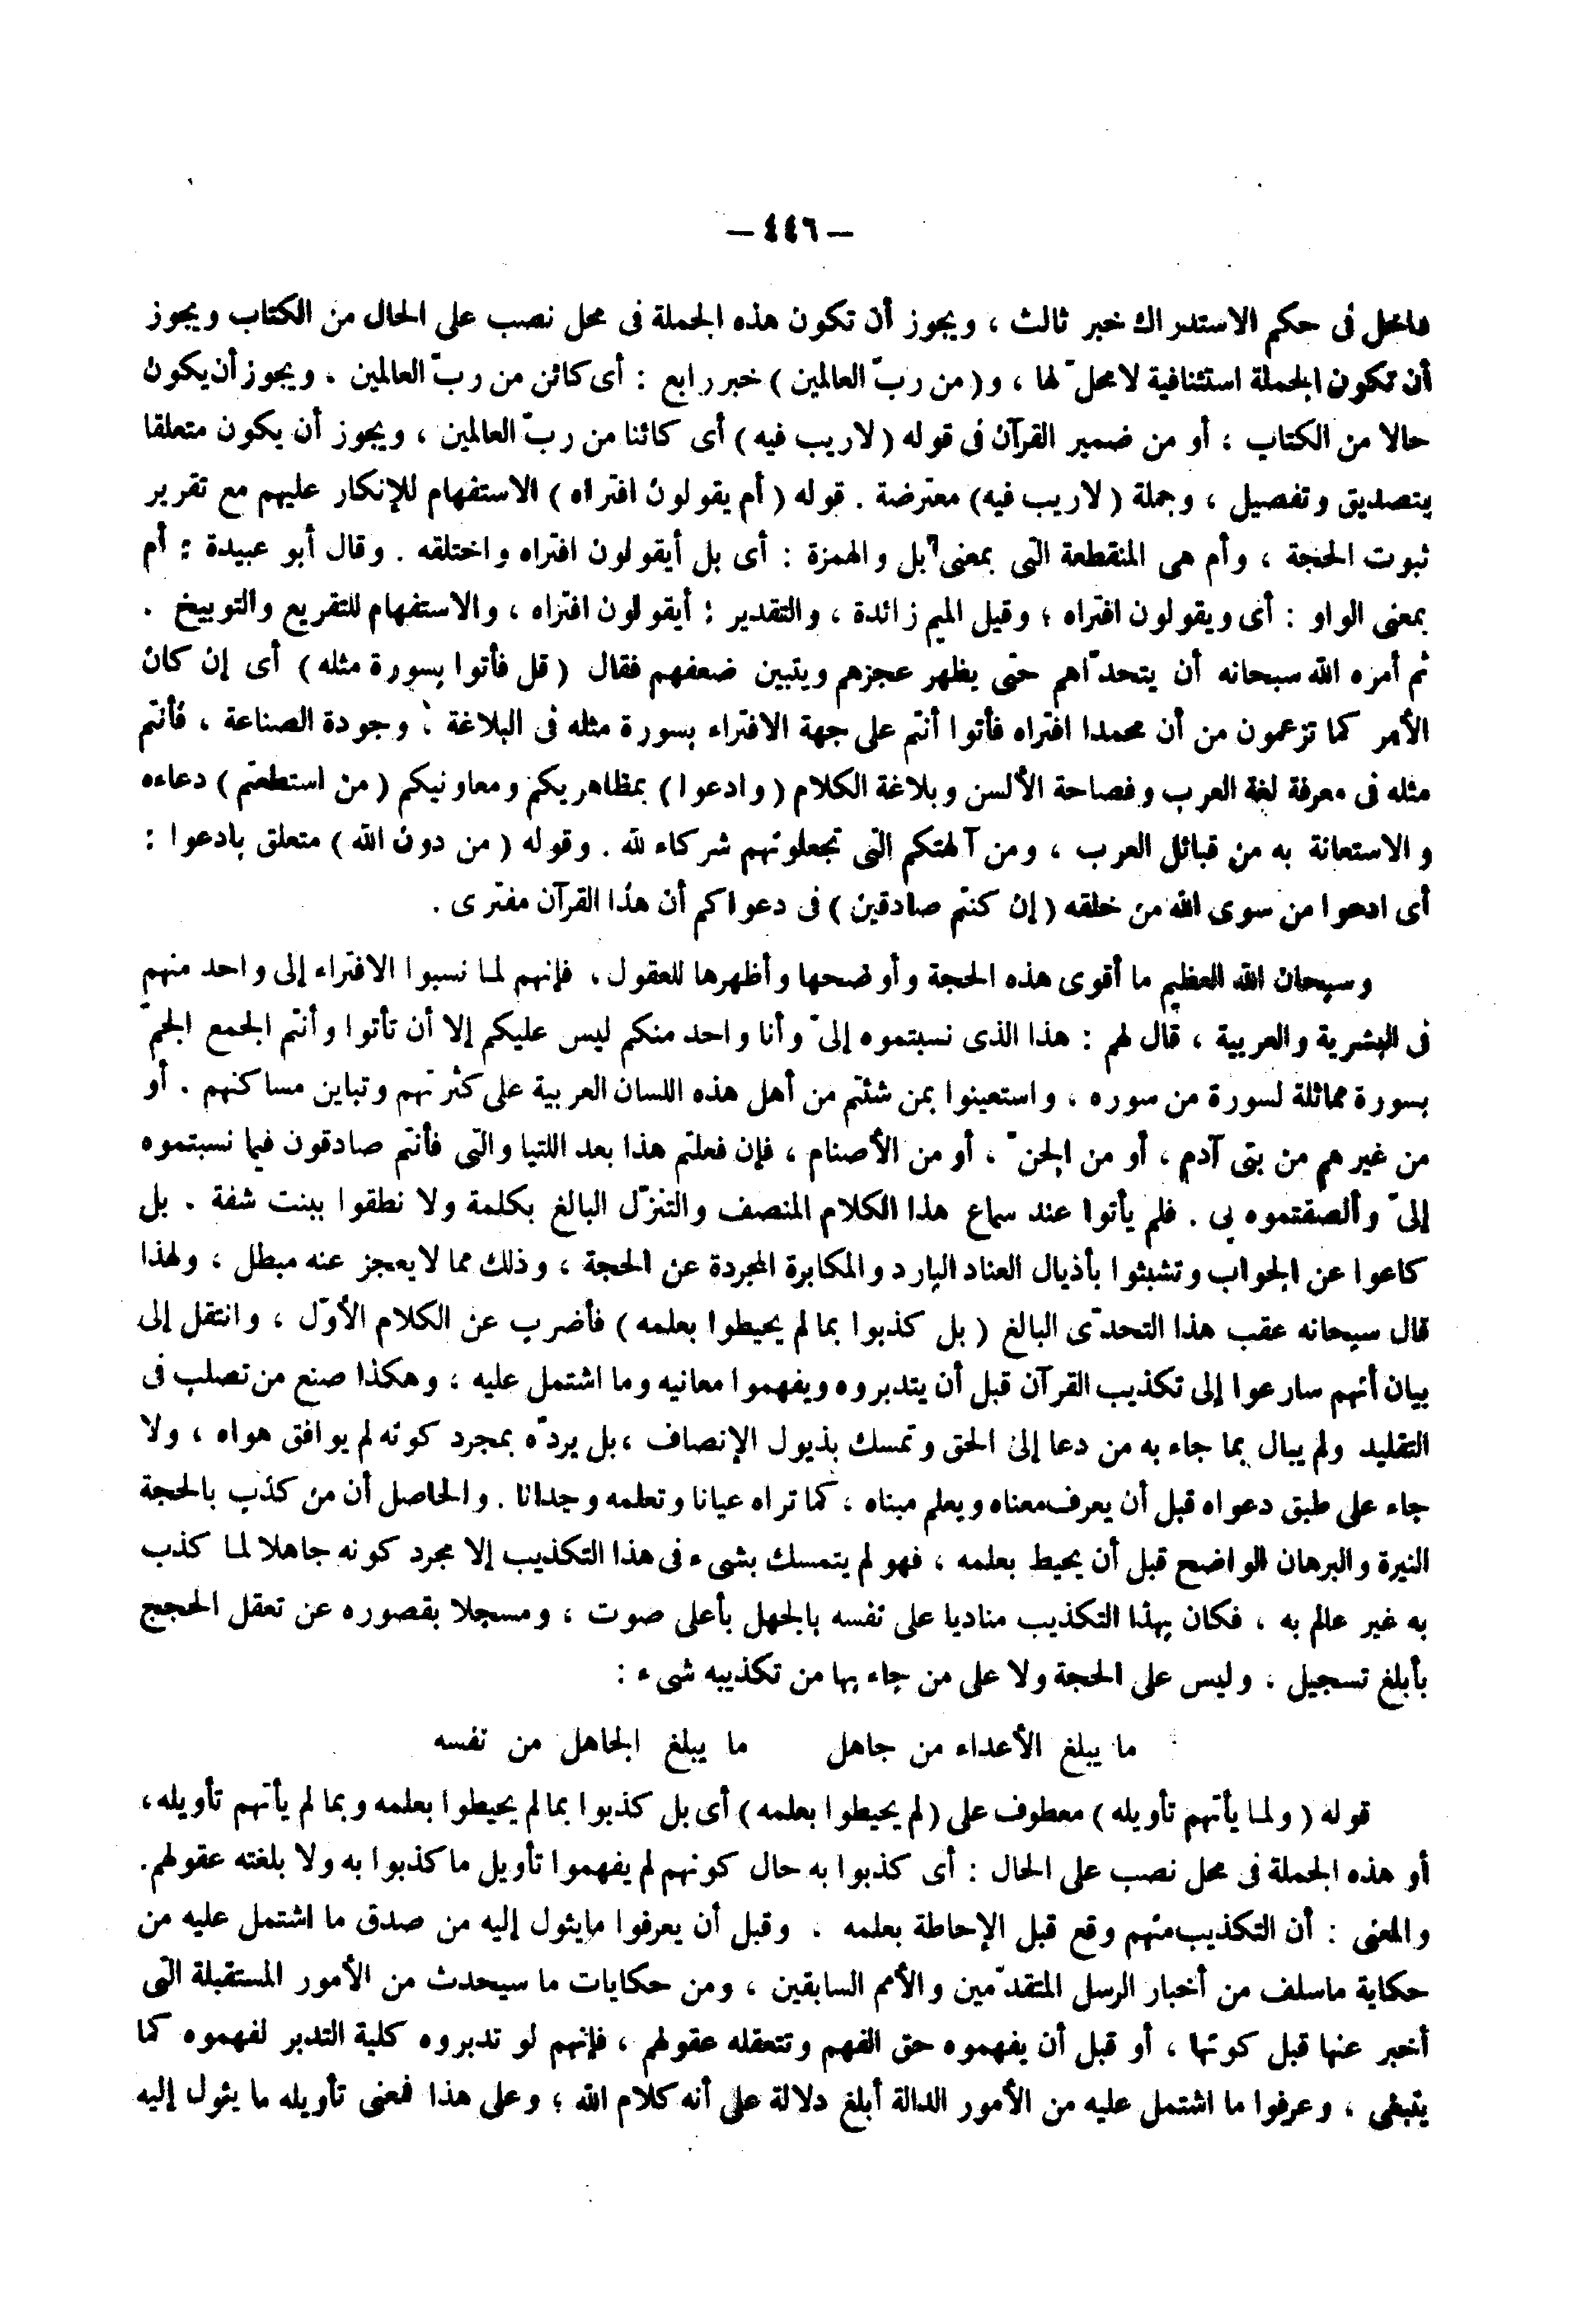 — ٤٤٦ —
داخل فى حكم الاستدراك خبر ثالث ، ويجوز أن تكون هذه الجملة فى محل نصب على الحال من الكتاب ويجوز
أن تكون الجملة استئنافية لا محلّ لها ، و ( من ربّ العالمين ) خبر رابع : أى كائن من ربّ العالمين ، ويجوز أن يكون
حالا من الكتاب ، أو من ضمير القرآن فى قوله ( لاريب فيه ) أى كائنا من ربّ العالمين ، ويجوز أن يكون متعلقا
بتصديق وتفصيل ، وجملة ( لاريب فيه ) معترضة . قوله ( أم يقولون افتراه ) الاستفهام للإنكار عليهم مع تقرير
ثبوت الحجة ، وأم هى المنقطعة التى بمعنى بل والهمزة : أى بل أيقولون افتراه واختلقه . وقال أبو عبيدة : أم
بمعنى الواو : أى ويقولون افتراه ؛ وقيل الميم زائدة ، والتقدير : أيقولون افتراه ، والاستفهام للتقريع والتوبيخ .
ثم أمره الله سبحانه أن يتحدّاهم حتى يظهر عجزهم ويتبين ضعفهم فقال ( قل فأتوا بسورة مثله ) أى إن كان
الأمر كما تزعمون من أن محمدا افتراه فأتوا أنتم على جهة الافتراء بسورة مثله فى البلاغة ، وجودة الصناعة ، فأنتم
مثله فى معرفة لغة العرب وفصاحة الألسن وبلاغة الكلام ( وادعوا ) بمظاهريكم ومعاونيكم ( من استطعتم ) دعاءه
والاستعانة به من قبائل العرب ، ومن آلهتكم التى تجعلونهم شركاء لله . وقوله ( من دون الله ) متعلق بادعوا :
أى ادعوا من سوى الله من خلقه ( إن كنتم صادقين ) فى دعواكم أن هذا القرآن مفترى .
وسبحان الله العظيم ما أقوى هذه الحجة وأوضحها وأظهرها للعقول ، فإنهم لما نسبوا الافتراء إلى واحد منهم
فى البشرية والعربية ، قال لهم : هذا الذى نسبتموه إلىّ وأنا واحد منكم ليس عليكم إلا أن تأتوا وأنتم الجمع الجمّ
بسورة مماثلة لسورة من سوره ، واستعينوا بمن شئتم من أهل هذه اللسان العربية على كثرتهم وتباين مساكنهم . أو
من غيرهم من بنى آدم ، أو من الجنّ ، أو من الأصنام ، فإن فعلتم هذا بعد اللتيا والتى فأنتم صادقون فيما نسبتموه
إلىّ وألصقتموه بى . فلم يأتوا عند سماع هذا الكلام المنصف والتنزّل البالغ بكلمة ولا نطقوا ببنت شفة . بل
كاعوا عن الجواب وتشبثوا بأذيال العناد البارد والمكابرة المجردة عن الحجة ، وذلك مما لا يعجز عنه مبطل ، ولهذا
قال سبحانه عقب هذا التحدّى البالغ ( بل كذبوا بما لم يحيطوا بعلمه ) فأضرب عن الكلام الأوّل ، وانتقل إلى
بيان أنهم سارعوا إلى تكذيب القرآن قبل أن يتدبروه ويفهموا معانيه وما اشتمل عليه ، وهكذا صنع من تصلب فى
التقليد ولم يبال بما جاء به من دعا إلى الحق وتمسك بذيول الإنصاف ، بل يردّه بمجرد كونه لم يوافق هواه ، ولا
جاء على طبق دعواه قبل أن يعرف معناه ويعلم مبناه ، كما تراه عيانا وتعلمه وجدانا . والحاصل أن من كذب بالحجة
النيرة والبرهان الواضح قبل أن يحيط بعلمه ، فهو لم يتمسك بشىء فى هذا التكذيب إلا مجرد كونه جاهلا لما كذب
به غير عالم به ، فكان بهذا التكذيب مناديا على نفسه بالجهل بأعلى صوت ، ومسجلا بقصوره عن تعقل الحجج
بأبلغ تسجيل ، وليس على الحجة ولا على من جاء بها من تكذيبه شىء :
ما يبلغ الأعداء من جاهل ما يبلغ الجاهل من نفسه
قوله ( ولما يأتهم تأويله ) معطوف على ( لم يحيطوا بعلمه ) أى بل كذبوا بما لم يحيطوا بعلمه وبما لم يأتهم تأويله ،
أو هذه الجملة فى محل نصب على الحال : أى كذبوا به حال كونهم لم يفهموا تأويل ما كذبوا به ولا بلغته عقولهم .
والمعنى : أن التكذيب منهم وقع قبل الإحاطة بعلمه ، وقبل أن يعرفوا ما يئول إليه من صدق ما اشتمل عليه من
حكاية ماسلف من أخبار الرسل المتقدّمين والأمم السابقين ، ومن حكايات ما سيحدث من الأمور المستقبلة التى
أخبر عنها قبل كونها ، أو قبل أن يفهموه حق الفهم وتتعقله عقولهم ، فإنهم لو تدبروه كلية التدبر لفهموه كما
ينبغى ، وعرفوا ما اشتمل عليه من الأمور الدالة أبلغ دلالة على أنه كلام الله ؛ وعلى هذا فمعنى تأويله ما يئول إليه